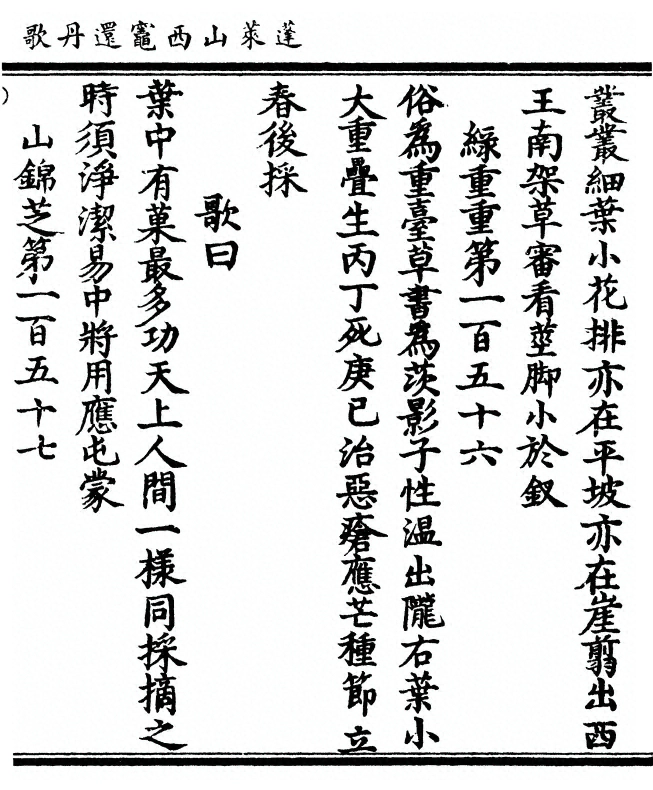 蓬萊山西竈還丹歌
叢叢細葉小花排亦在平坡亦在崖翦出西
王南架草審看莖脚小於釵
綠重重第一百五十六
俗為重臺草書為茨影子性温出隴右葉小
大重疊生丙丁死庚巳治惡瘡應芒種節立
春後採
歌曰
葉中有菓最多功天上人間一樣同採摘之
時須淨潔易中將用應屯蒙
山錦芝第一百五十七